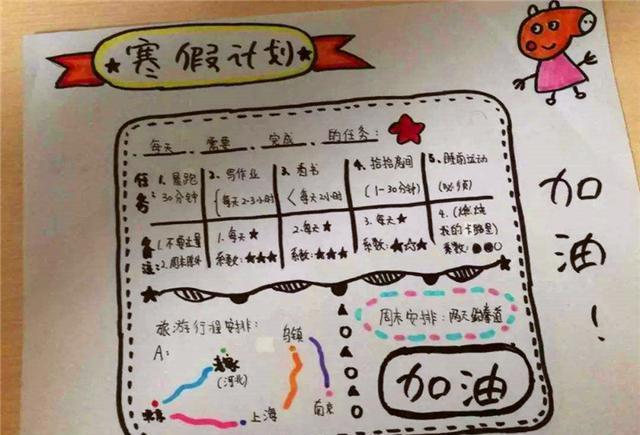 寒假计划
每天 需要 完成 的任务:
任务:
1. 晨跑
30分钟
2. 写作业
(每天2-3小时
3. 看书
<每天2小时
4. 拾拾房间
(1-30分钟)
5. 睡前运动
(必须)
备注:
1.不要过量
2.周末除外
1.每天★
系数:★★★
2.每天★
系数:★★★
3.每天★
系数:★☆☆
4.(燃烧
我的卡路里)
系数:●●○
旅游行程安排:
A:
老家
(河北)
北京
上海
乌镇
南京
周末安排:两天跆拳道
加油
加油!